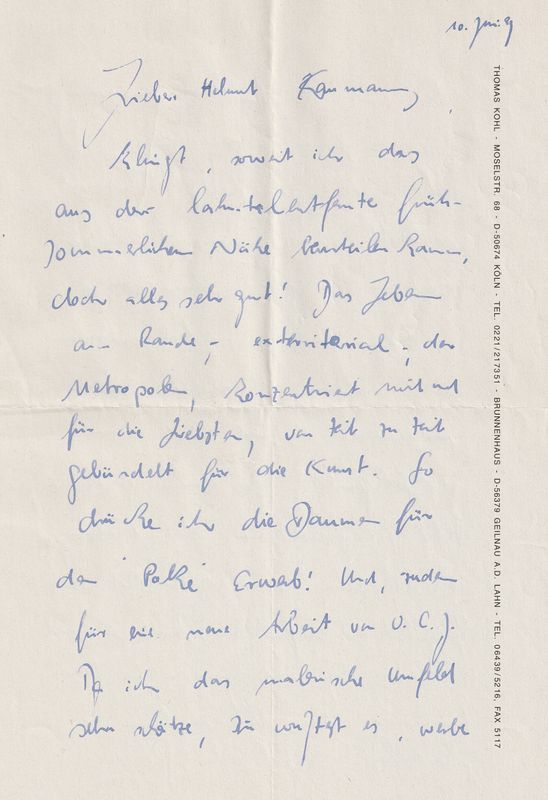 10. Juni
Lieber Helmut
Klingt, soweit ich das
aus der lahntalentfernte früh-
sommerlichen Nähe beurteilen kann,
doch alles sehr gut! Das Leben
am Rande, exterritorial, der
Metropolen, konzentriert mit und
für die Liebsten, von Zeit zu Zeit
gebündelt für die Kunst. So
drücke ich die Daumen für
den Polke Erwerb! Und, zudem
für eine neue Arbeit von U. C. J.
Da ich das malerische Umfeld
sehr schätze, Du wußtest es, werbe
THOMAS KOHL - MOSELSTR. 68 - D-50674 KÖLN - TEL. 0221/217351 - BRUNNENHAUS - D-56379 GEILNAU A.D. LAHN - TEL. 06439/5216 FAX 5117